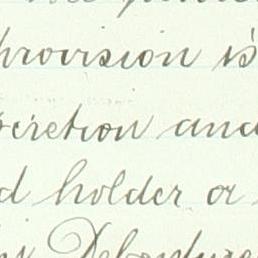 provision is
scretion and
d holder or
Debenture